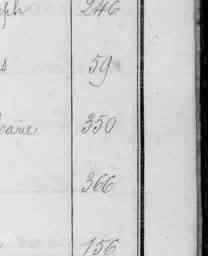 ph 246
s 59
earie 350
366
156